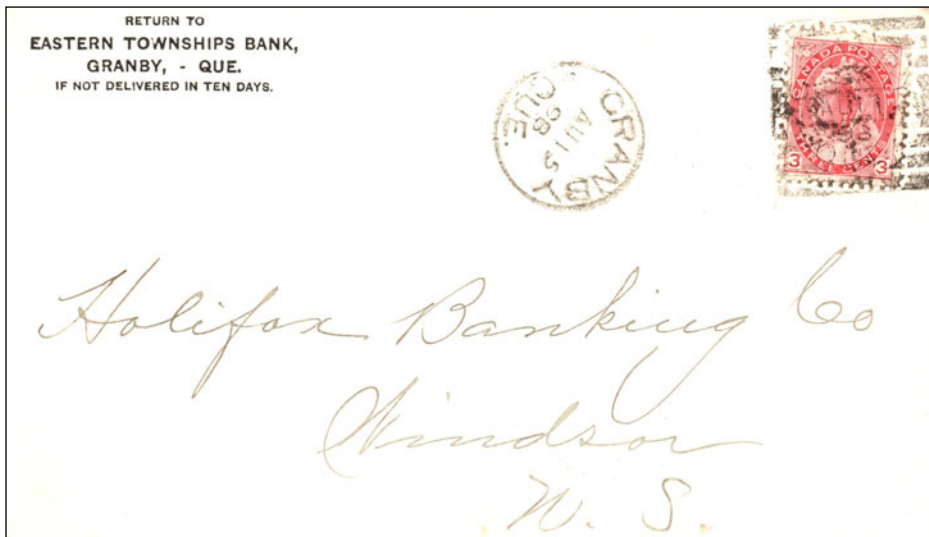 RETURN TO
EASTERN TOWNSHIPS BANK,
GRANBY, - QUE.
IF NOT DELIVERED IN TEN DAYS.
GRANBY
AU 15
98
QUE.
CANADA POSTAGE
THREE CENTS
3 3
Halifax Banking Co
Windsor
N. S.